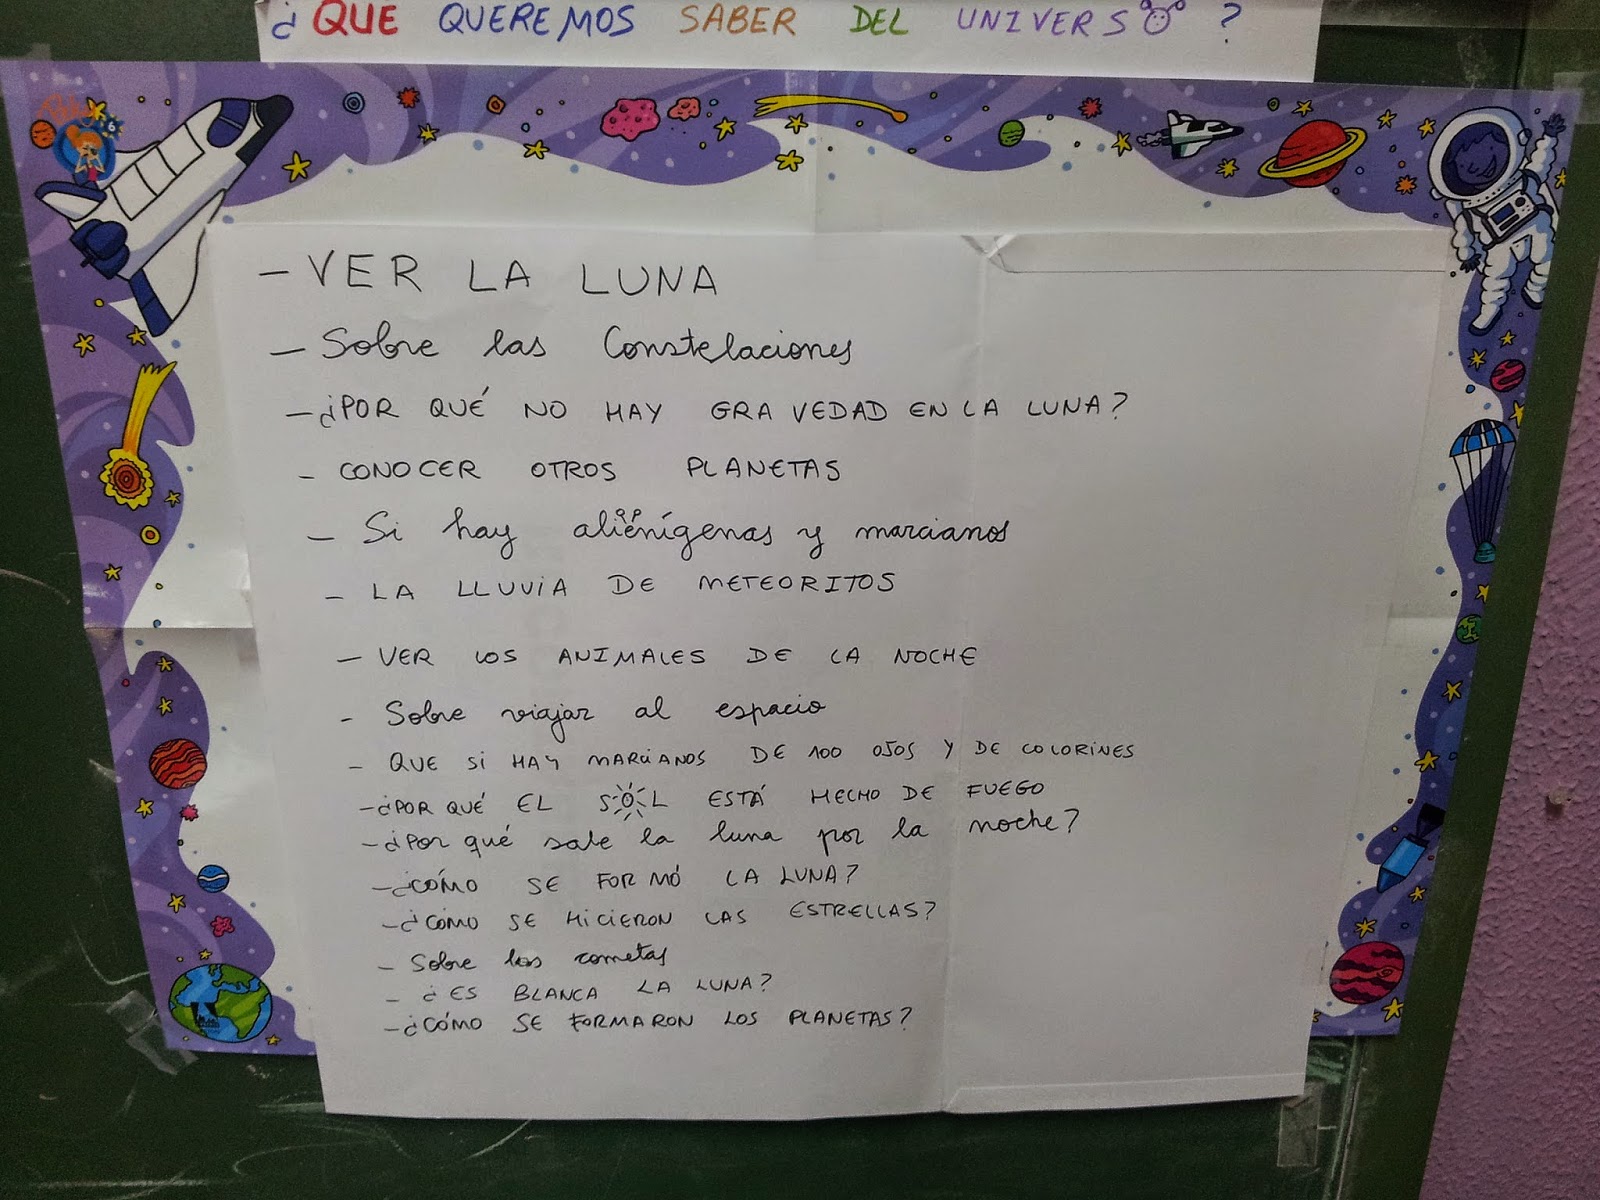 ¿QUÉ QUEREMOS SABER DEL UNIVERSO?
- VER LA LUNA
- Sobre las Constelaciones
- ¿POR QUÉ NO HAY GRAVEDAD EN LA LUNA?
- CONOCER OTROS PLANETAS
- Si hay alienígenas y marcianos
- LA LLUVIA DE METEORITOS
- VER LOS ANIMALES DE LA NOCHE
- Sobre viajar al espacio
- QUE SI HAY MARCIANOS DE 100 OJOS Y DE COLORINES
- ¿POR QUÉ EL SOL ESTÁ HECHO DE FUEGO
- ¿Por qué sale la luna por la noche?
- ¿CÓMO SE FORMÓ LA LUNA?
- ¿CÓMO SE HICIERON LAS ESTRELLAS?
- Sobre los cometas
- ¿ES BLANCA LA LUNA?
- ¿CÓMO SE FORMARON LOS PLANETAS?